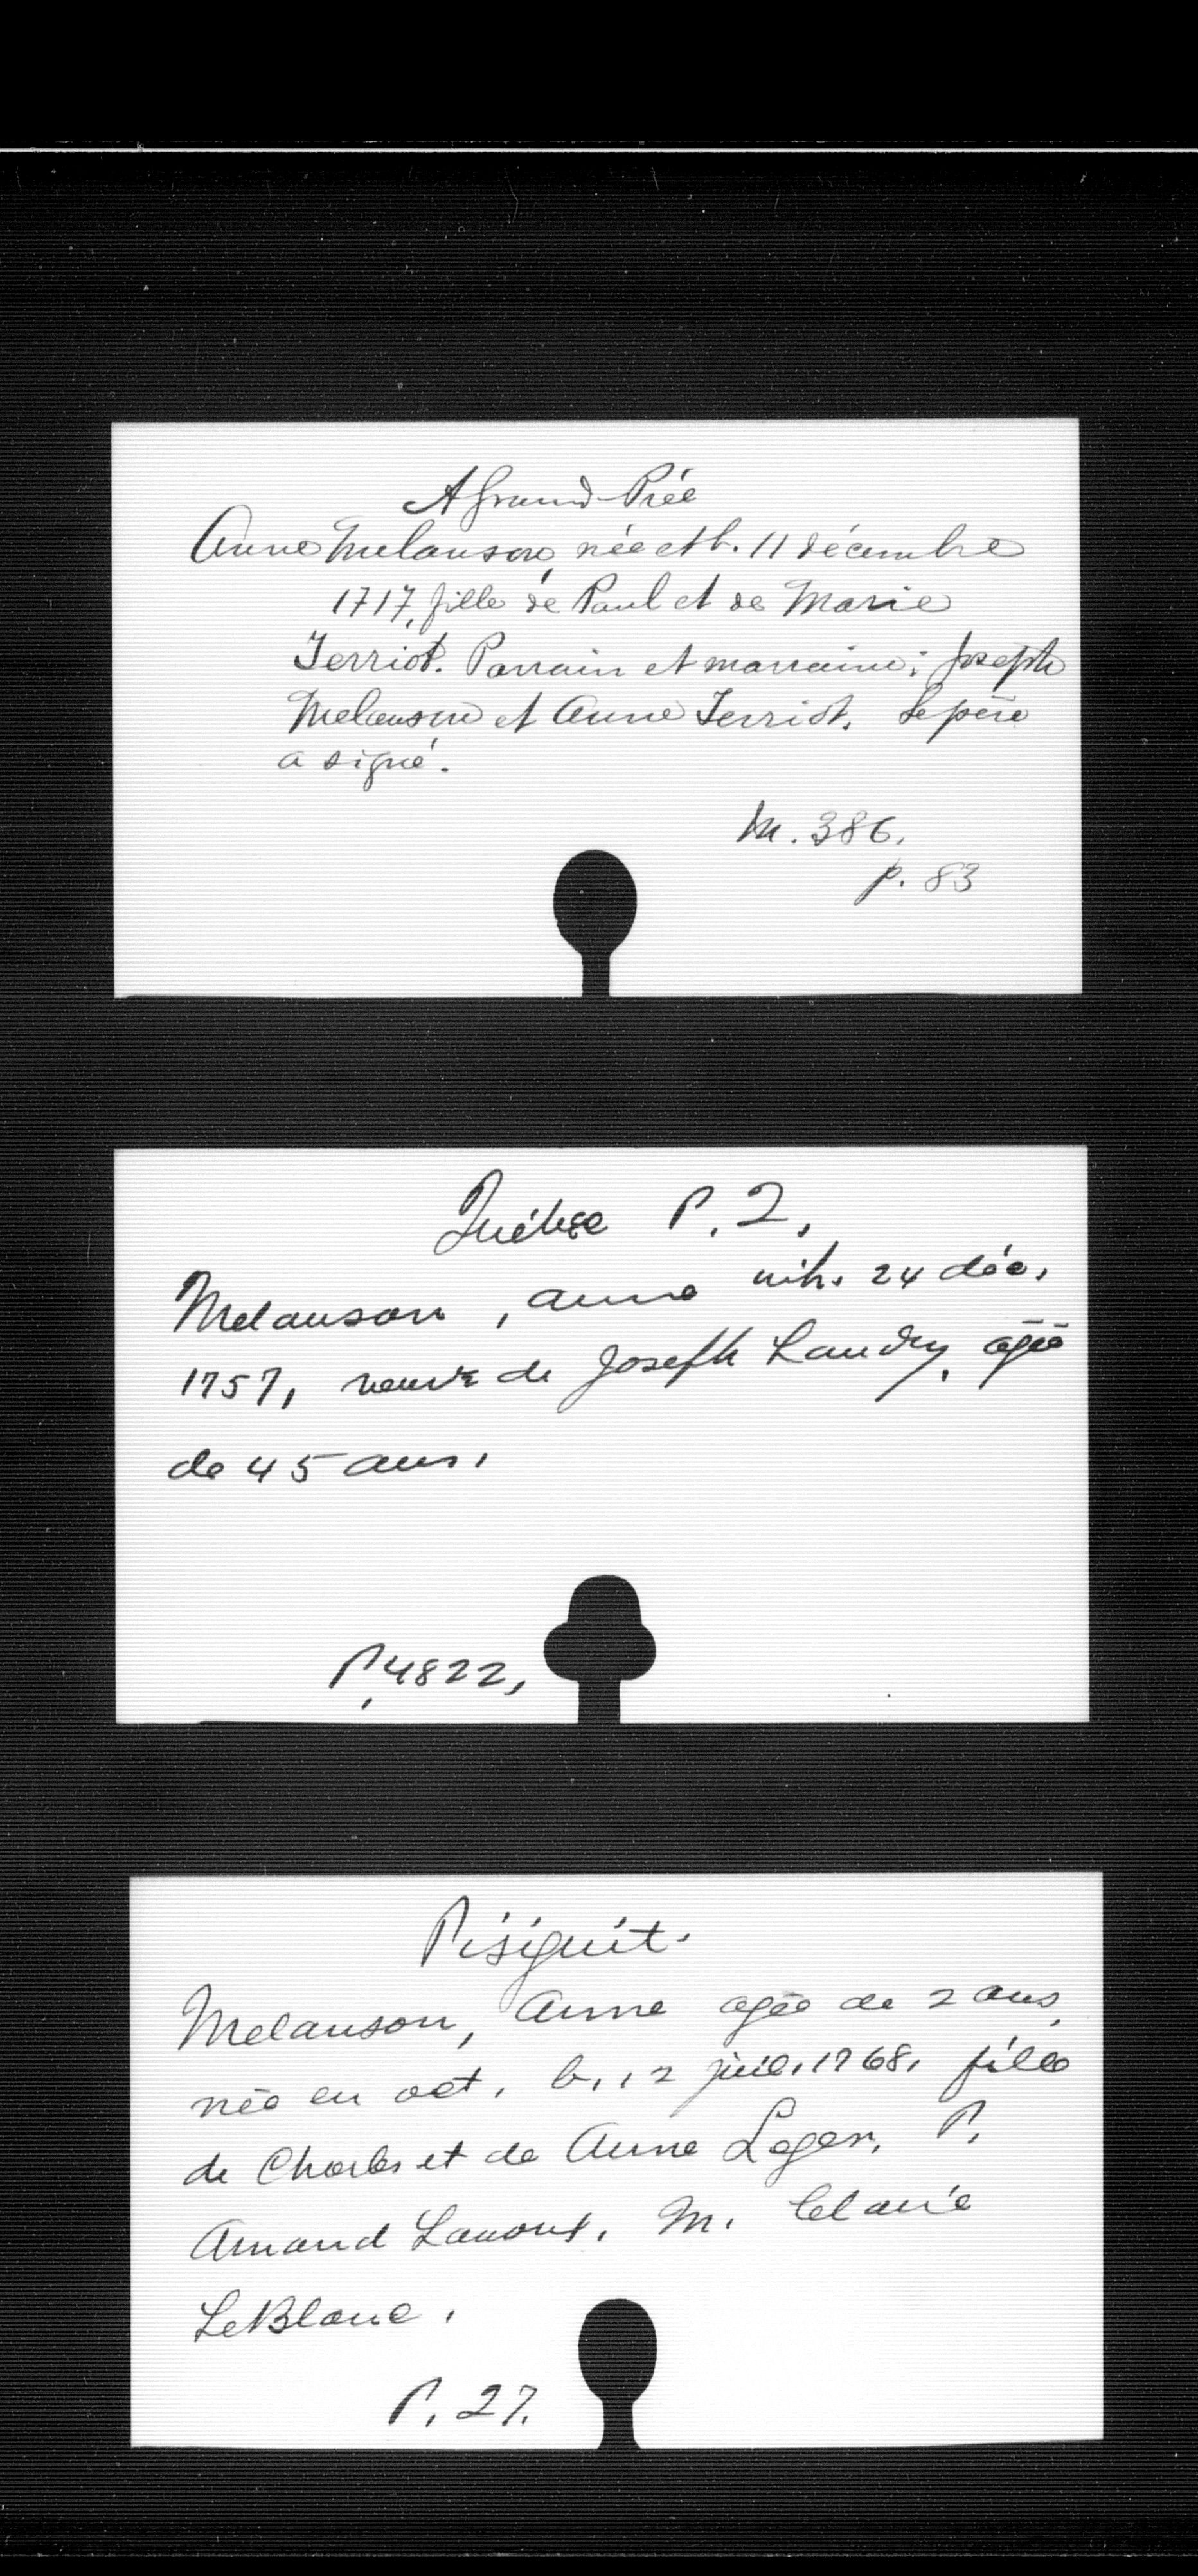 A Grand-Prée
Anne Melanson, née et b. 11 décembre
1717, fille de Paul et de Marie
Terriot. Parrain et marraine: Joseph
Melanson et Anne Terriot. Le père
a signé.
M. 386.
p. 83
Québec P. 2,
Melanson, Anne inh. 24 déc.
1757, veuve de Joseph Landry, agée
de 45 ans,
P, 4822,
Pisiguit.
Melanson, Anne agée de 2 ans,
née en oct. b, 12 juil. 1768, fille
de Charles et de Anne Leger, P,
Amand Lanoux, M.
LeBlanc,
P. 27.